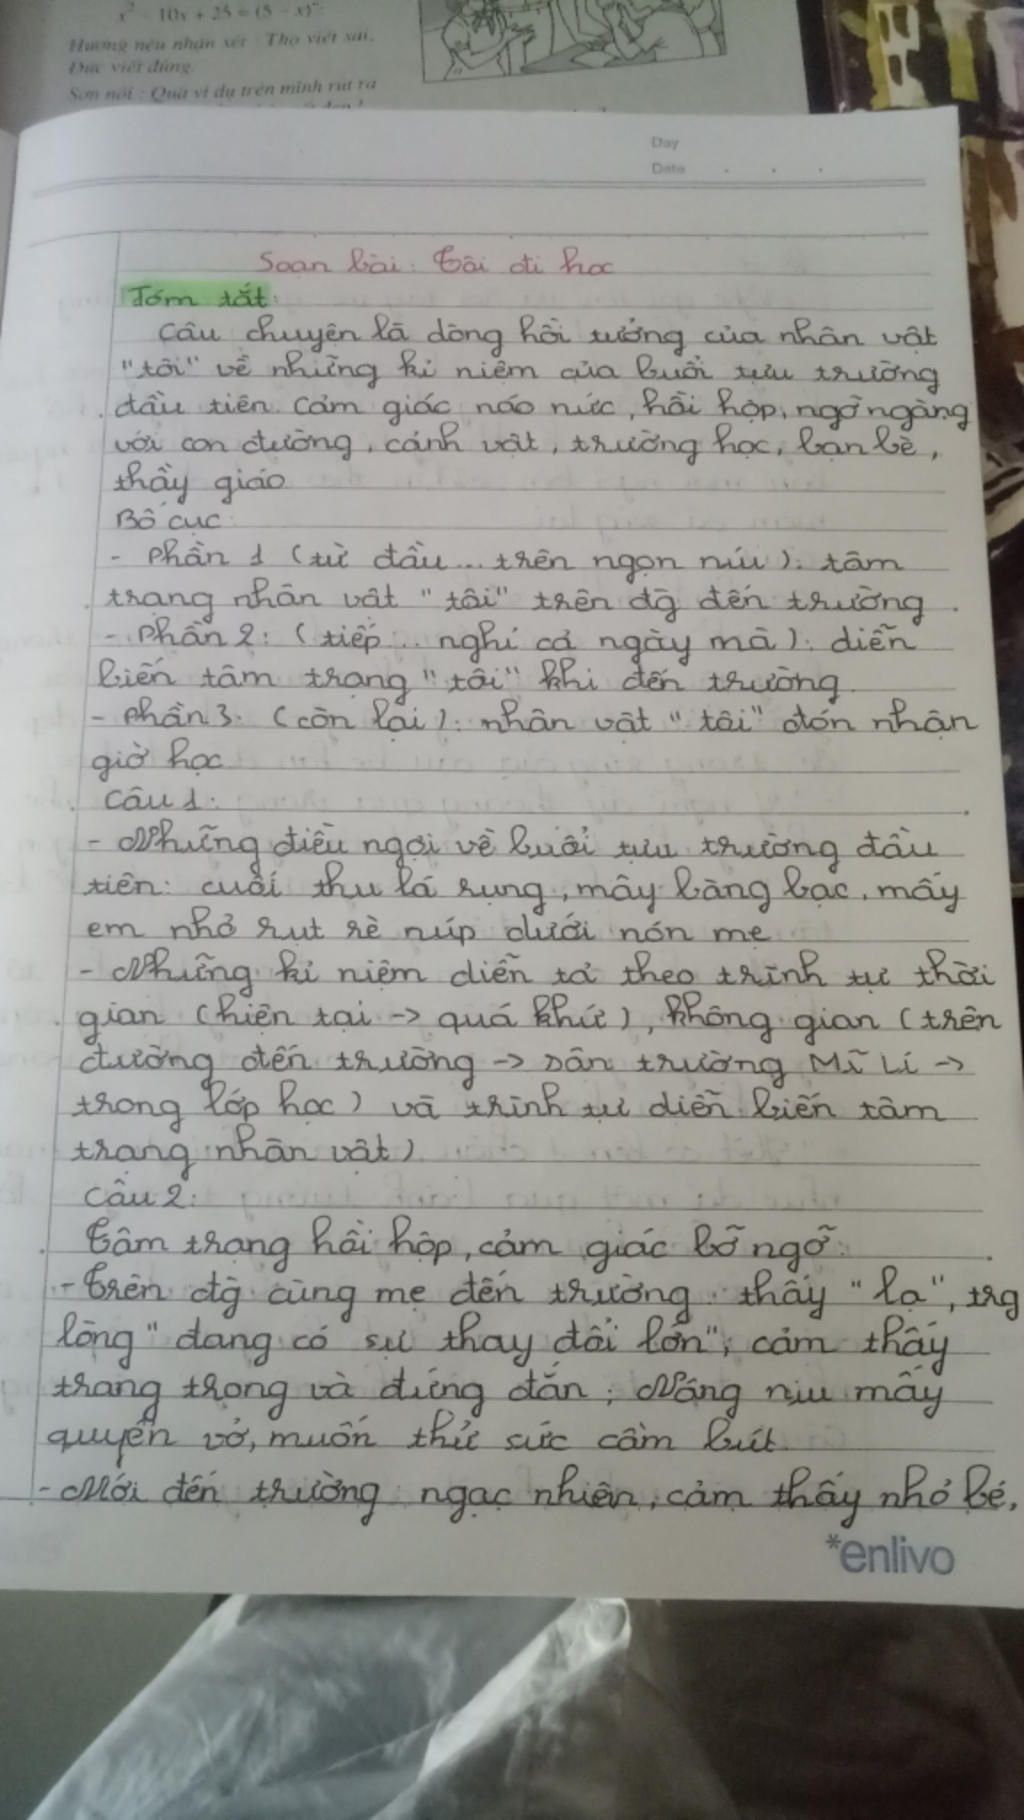 x² - 10x + 25 = (5 - x)²
Hương nêu nhận xét : Thọ viết sai,
Đức viết đúng.
Sơn nói : Qua ví dụ trên mình rút ra
Day
Date
Soạn bài: Tôi đi học
Tóm tắt:
Câu chuyện là dòng hồi tưởng của nhân vật
"tôi" về những kỉ niệm của buổi tựu trường
đầu tiên. Cảm giác náo nức, hồi hộp, ngỡ ngàng
với con đường, cảnh vật, trường học, bạn bè,
thầy giáo
Bố cục:
- Phần 1 (từ đầu... trên ngọn núi): tâm
trạng nhân vật "tôi" trên đg đến trường.
- Phần 2: (tiếp... nghỉ cả ngày mà): diễn
biến tâm trạng "tôi" khi đến trường.
- Phần 3: (còn lại): nhân vật "tôi" đón nhận
giờ học.
Câu 1:
- Những điều ngợi về buổi tựu trường đầu
tiên: cuối thu lá rụng, mây bàng bạc, mấy
em nhỏ rụt rè núp dưới nón mẹ
- Những kỉ niệm diễn tả theo trình tự thời
gian (hiện tại -> quá khứ), không gian (trên
đường đến trường -> sân trường Mĩ Lí ->
trong lớp học) và trình tự diễn biến tâm
trạng nhân vật)
Câu 2:
Tâm trạng hồi hộp, cảm giác bỡ ngỡ:
- Trên đg cùng mẹ đến trường: thấy "lạ", trg
lòng "đang có sự thay đổi lớn", cảm thấy
trang trọng và đứng đắn; Nâng niu mấy
quyển vở, muốn thử sức cầm bút.
- Mới đến trường: ngạc nhiên, cảm thấy nhỏ bé,
*enlivo